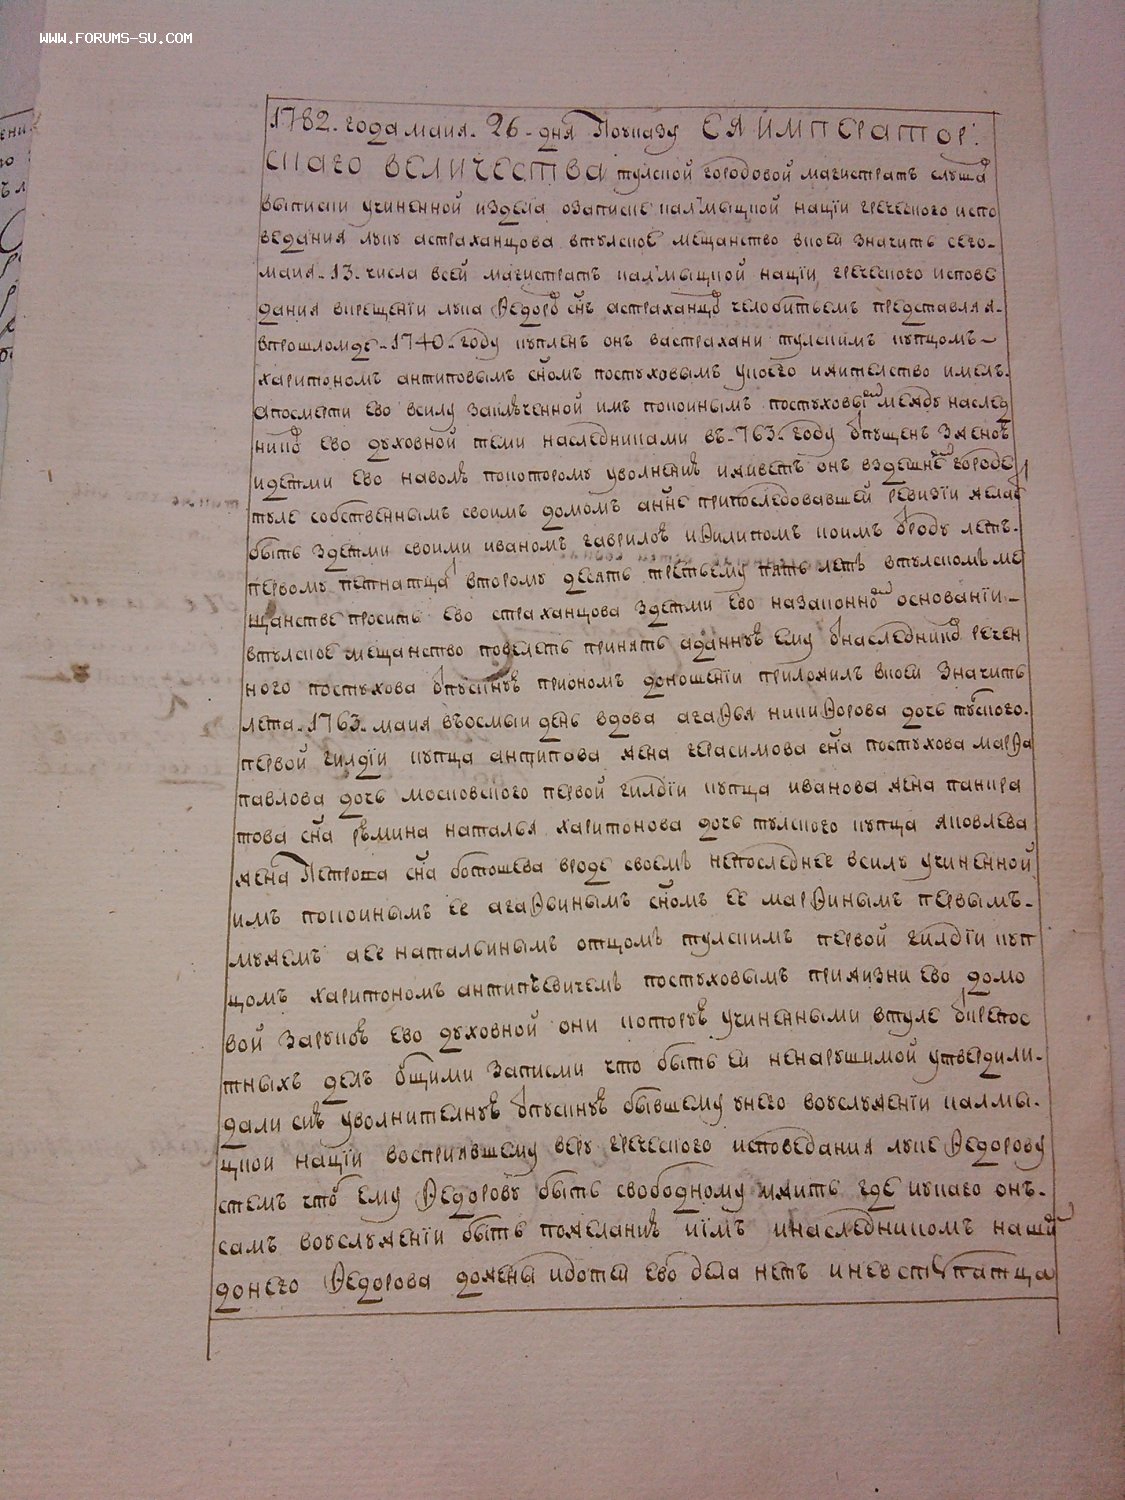 WWW.FORUMS-SU.COM
1782. года маия. 26. дня Поуказу ЕЯ ИМПЕРАТОР:
СКАГО ВЕЛИЧЕСТВА тулской городовой магистратъ слуша
выписки учиненной издела озаписке калмыцкой нацїи греческого испо
ведания луку астраханцова втулское мещанство вкоей значитъ сего.
маия. 13. числа всей магистратъ калмыцкой нацїи греческого испове
дания вкрещенїи лука Ѳедоров снъ астраханцов челобитьемъ представляя.
впрошломде. 1740. году купленъ онъ вастрахани тулскимъ купцомъ
харитономъ антиповымъ сномъ постуховымъ укоего ижителство имелъ.
апосмерти ево всилу заключенной имъ покойнымъ постуховым между наслед
ников ево духовной теми наследниками въ. 763. году отпущенъ зженою
идетми ево наволю покоторому уволнению иживетъ онъ вздешнем городе
туле собственнымъ своимъ домомъ аныне припоследовавшей ревизїи желает
быть здетми своими иваномъ гавриловъ иѲилипомъ коимъ отроду летъ.
первому петнатцать второму десять третьему пять летъ втулскомъ ме
щанстве проситъ ево страханцова здетми ево назаконном основанїи
втулское мещанство повелеть принять аданную ему отнаследников речен
ного постухова отпускнуюприономъ доношенїи приложилъ вкоей значитъ
лета. 1763. маия восмыи день вдова агаѲья никиѲорова дочь тулского.
первой гилдїи купца антипава жена герасимова сна постухова марѲа
павлова дочь московского первой гилдїи купца иванова жена панкра
това сна рюмина наталья харитонова дочь тулского купца яковлева
жена Петрова сна ботошева вроде своемъ непоследнее всилу учиненной
имъ покойнымъ ее агаѲьинымъ сномъ ее марѲинымъ первымъ.
мужемъ аее натальинымъ отцомъ тулскимъ первой гилдїи куп
цомъ харитономъ антипьевичемъ постуховымъ прижизни ево домо
вой заруков ево духовной они которую учиненными втуле откренос
тныхъ делъ общими записми что быть ей ненарушимой утвердили.
дали сию уволнителную отпускную бывшему унего воуслуженїи калмы.
цкой нацїи восприявшему веру греческого исповедания луке Ѳедорову
стемъ чтоб ему Ѳедорову быть свободному ижить где укаго онъ.
самъ воуслуженїи быть пожелаитъ иїмъ инаследникомъ нашим
донего Ѳедорова дожены идотей ево дела нетъ иневступатца